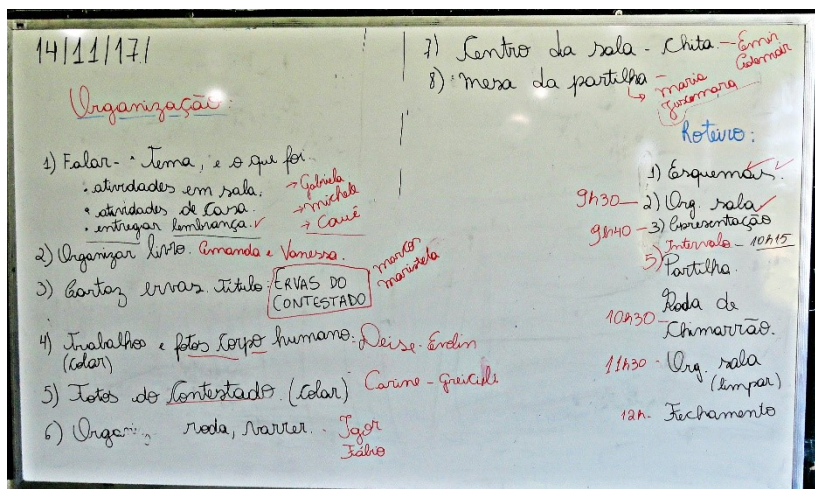 14/11/17/
Organização:
1) Falar - Tema, e o que foi
• atividades em sala. → Gabriela
• atividades de casa. → michele
• entregar lembrança. ✓ → Cauê
2) Organizar livro. Amanda e Vanessa.
3) Cartaz ervas. Titulo: ERVAS DO CONTESTADO marcos maristela
4) Trabalhos e fotos corpo humano: Deise - Evelin
(colar)
5) Fotos do Contestado. (colar) Carine - Greiciele
6) roda, varrer. - Igor
Fábio
7) Centro da sala - Chita - Emir
Ademar
8) mesa da partilha -
↳ maria
Juremara
Roteiro:
1) Esquemas. ✓
9h30 - 2) Org. sala ✓
9h40 - 3) Apresentação
5) Intervalo - 10h15
Partilha.
10h30 - Roda de
Chimarrão.
11h30 - Org. sala
(limpar)
12h. Fechamento